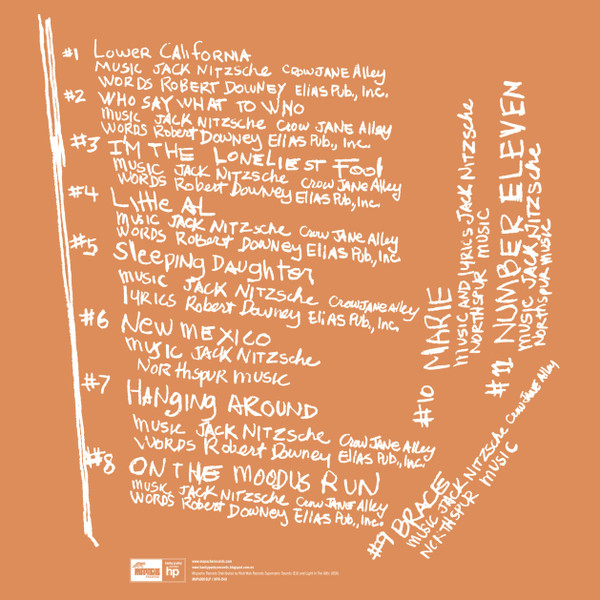 #1 LOWER CALIFORNIA
MUSIC JACK NITZSCHE CROW JANE Alley
WORDS ROBERT DOWNEY Elias Pub., Inc.
#2 WHO SAY WHAT TO WHO
MUSIC JACK NITZSCHE CROW JANE Alley
WORDS Robert Downey Elias Pub., Inc.
#3 I'M THE LONELIEST Fool
MUSIC JACK NITZSCHE CROW JANE Alley
WORDS Robert Downey Elias Pub., Inc.
#4 Little AL
MUSIC JACK NITZSCHE CROW JANE Alley
WORDS Robert Downey Elias Pub., Inc.
#5 Sleeping Daughter
MUSIC JACK NITZSCHE CROW JANE Alley
lyrics Robert Downey Elias Pub., Inc.
#6 New Mexico
MUSIC JACK NITZSCHE
NORTHSPUR MUSIC
#7 HANGING AROUND
MUSIC JACK NITZSCHE CROW JANE Alley
WORDS Robert Downey Elias Pub., Inc.
#8 ON THE MOODUS RUN
MUSIC JACK NITZSCHE CROW JANE Alley
WORDS Robert Downey Elias Pub., Inc.
#9 BRACIE
MUSIC JACK NITZSCHE CROW JANE Alley
NORTHSPUR MUSIC
#10 MARIE
MUSIC AND LYRICS JACK NITZSCHE
NORTHSPUR MUSIC
#11 NUMBER ELEVEN
MUSIC JACK NITZSCHE
NORTHSPUR MUSIC
hp